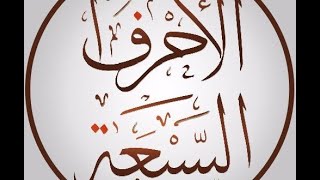 الأحرف
السبعة